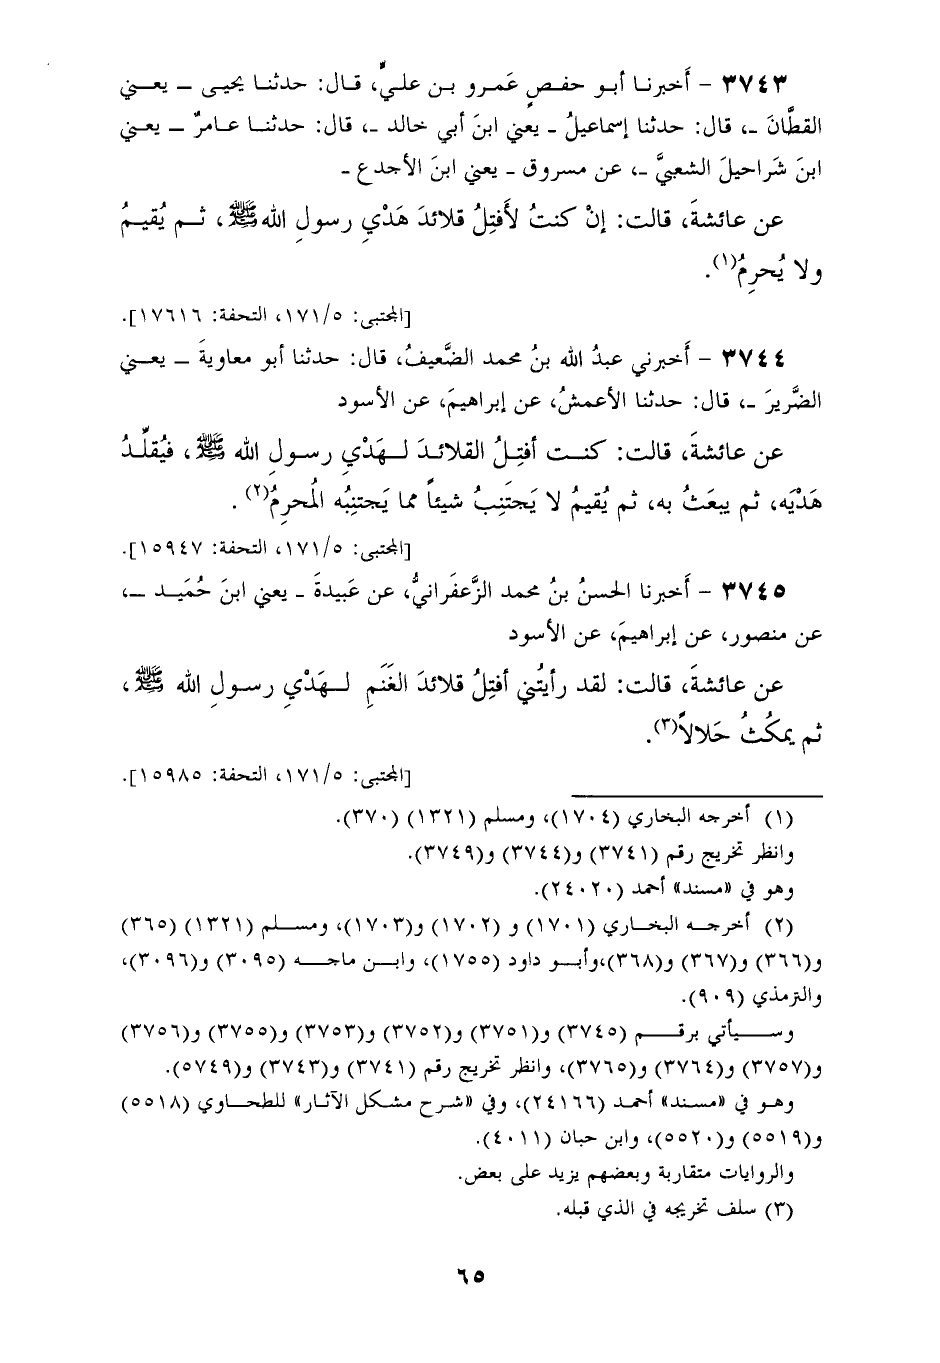 ٣٧٤٣ - أَخبرنا أبو حفصٍ عَمرو بن عليٍّ، قال: حدثنا يحيى - يعني
القطَّانَ -، قال: حدثنا إسماعيلُ - يعني ابنَ أبي خالد -، قال: حدثنا عامرٌ - يعني
ابنَ شَراحيلَ الشعبيَّ -، عن مسروق - يعني ابنَ الأجدع -
عن عائشةَ، قالت: إنْ كنتُ لأَفتِلُ قلائدَ هَدْيِ رسولِ الله ﷺ، ثم يُقيمُ
ولا يُحرِمُ(١).
[المجتبى: ١٧١/٥، التحفة: ١٧٦١٦].
٣٧٤٤ - أَخبرني عبدُ الله بنُ محمد الضَّعيفُ، قال: حدثنا أبو معاويةَ - يعني
الضَّريرَ -، قال: حدثنا الأعمشُ، عن إبراهيمَ، عن الأسود
عن عائشةَ، قالت: كنت أفتِلُ القلائدَ لهَدْيِ رسولِ الله ﷺ، فيُقلِّدُ
هَدْيَه، ثم يبعَثُ به، ثم يُقيمُ لا يَجتَنِبُ شيئاً مما يَجتنِبُه المُحرِمُ(٢).
[المجتبى: ١٧١/٥، التحفة: ١٥٩٤٧].
٣٧٤٥ - أَخبرنا الحسنُ بنُ محمد الزَّعفَرانيُّ، عن عَبيدةَ - يعني ابنَ حُمَيد -،
عن منصور، عن إبراهيمَ، عن الأسود
عن عائشةَ، قالت: لقد رأيتُني أفتِلُ قلائدَ الغَنَمِ لهَدْيِ رسولِ الله ﷺ،
ثم يمكُثُ حَلالاً(٣).
[المجتبى: ١٧١/٥، التحفة: ١٥٩٨٥].
(١) أخرجه البخاري (١٧٠٤)، ومسلم (١٣٢١) (٣٧٠).
وانظر تخريج رقم (٣٧٤١) و(٣٧٤٤) و(٣٧٤٩).
وهو في «مسند» أحمد (٢٤٠٢٠).
(٢) أخرجه البخاري (١٧٠١) و (١٧٠٢) و(١٧٠٣)، ومسلم (١٣٢١) (٣٦٥)
و(٣٦٦) و(٣٦٧) و(٣٦٨)،وأبو داود (١٧٥٥)، وابن ماجه (٣٠٩٥) و(٣٠٩٦)،
والترمذي (٩٠٩).
وسيأتي برقم (٣٧٤٥) و(٣٧٥١) و(٣٧٥٢) و(٣٧٥٣) و(٣٧٥٥) و(٣٧٥٦)
و(٣٧٥٧) و(٣٧٦٤) و(٣٧٦٥)، وانظر تخريج رقم (٣٧٤١) و(٣٧٤٣) و(٥٧٤٩).
وهو في «مسند» أحمد (٢٤١٦٦)، وفي «شرح مشكل الآثار» للطحاوي (٥٥١٨)
و(٥٥١٩) و(٥٥٢٠)، وابن حبان (٤٠١١).
والروايات متقاربة وبعضهم يزيد على بعض.
(٣) سلف تخريجه في الذي قبله.
٦٥